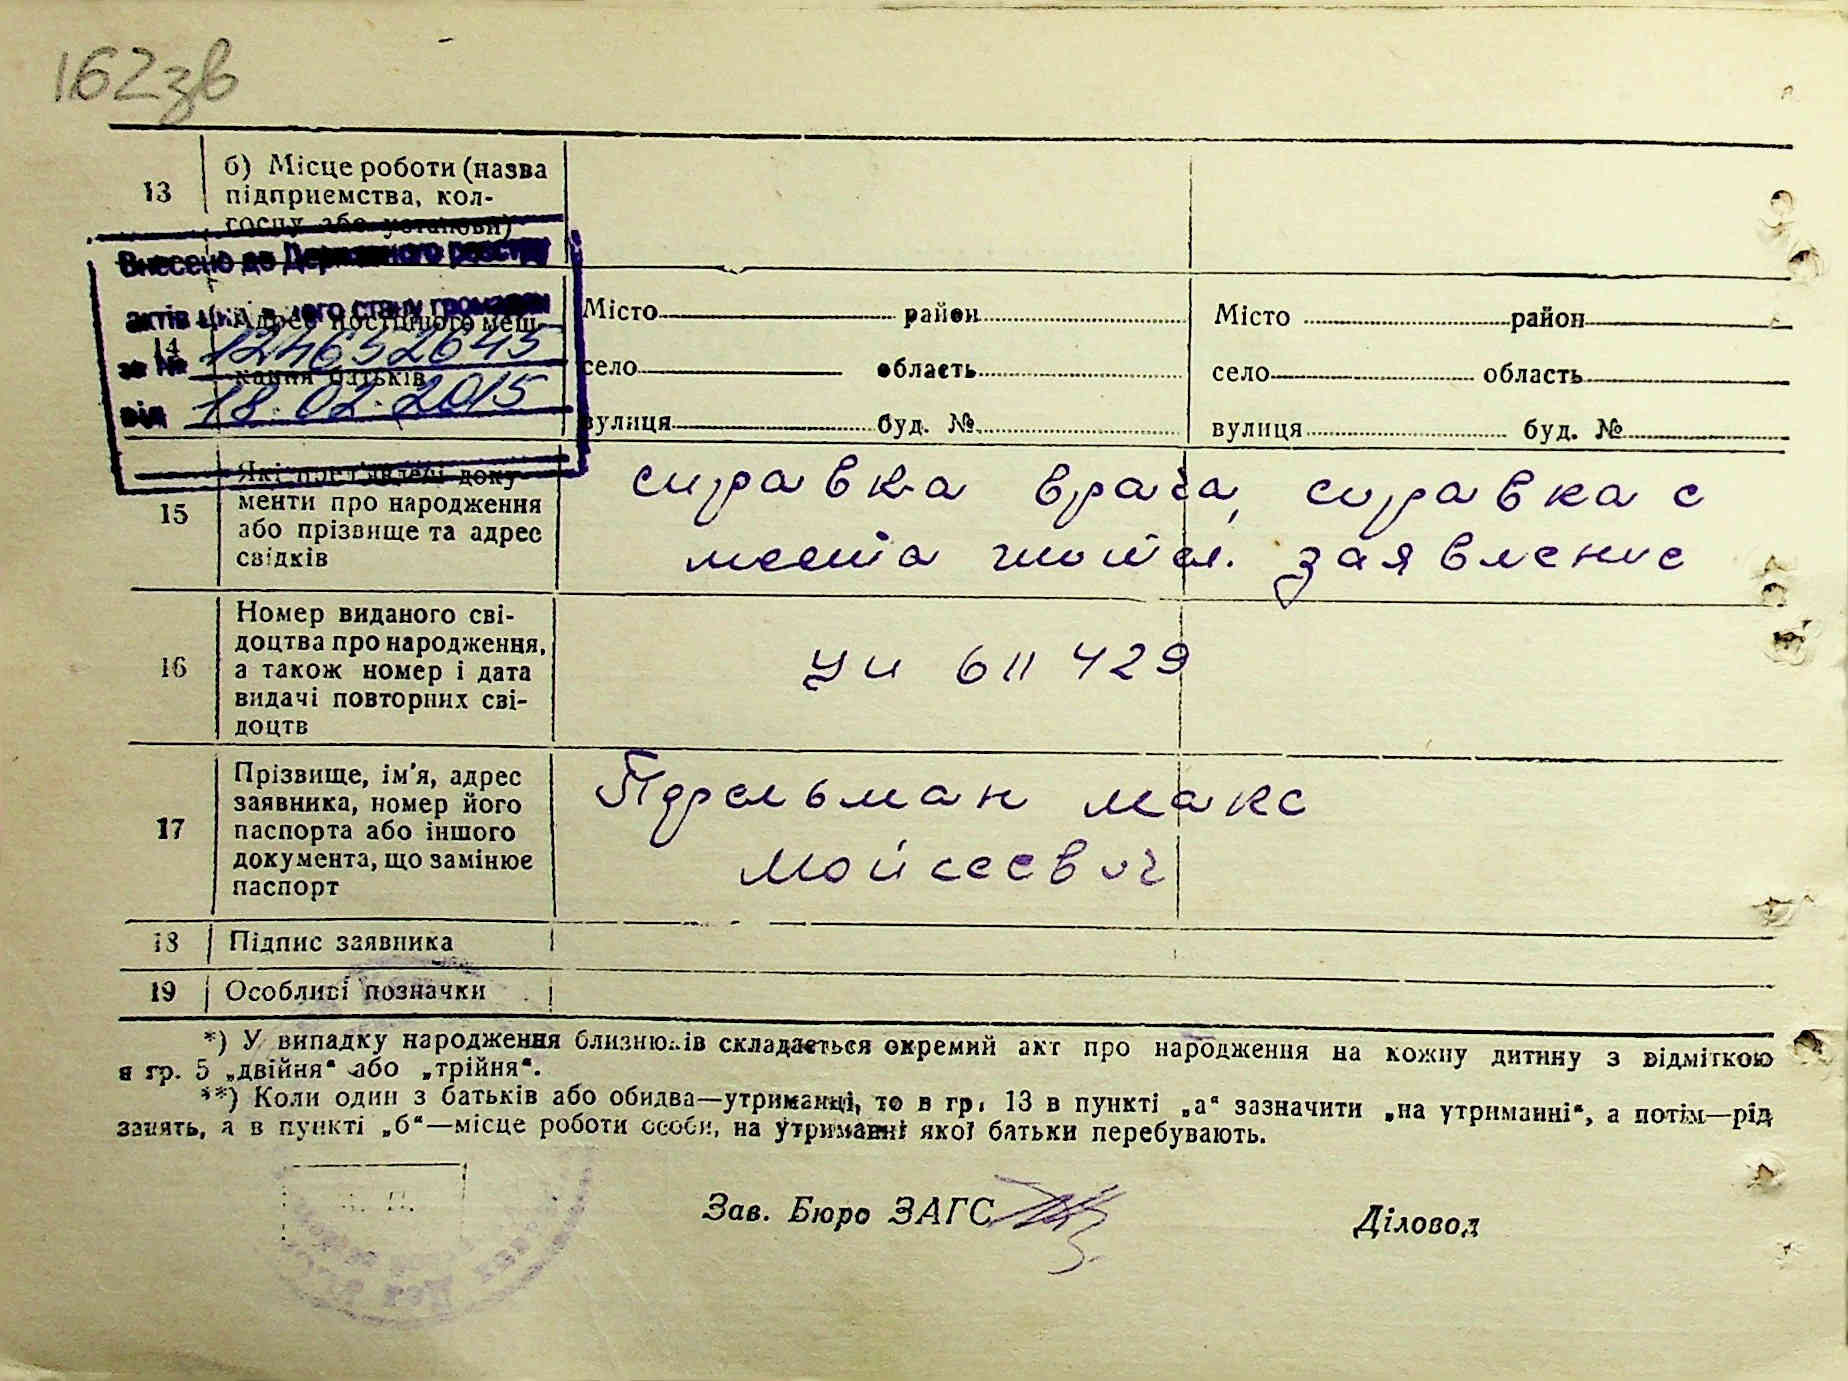 162зв
13
б) Місце роботи (назва
підприємства, кол-
госпу або установи)
Внесено до Державного реєстру
актів цивільного стану громадян
за № 12465264
від 18.02.2015
14
Адрес постійного меш-
кання батьків
Місто район
село область
вулиця буд. №
Місто район
село область
вулиця буд. №
15
Які пред'явлені доку-
менти про народження
або прізвище та адрес
свідків
справка врача, справка с
места жит. заявление
16
Номер виданого сві-
доцтва про народження,
а також номер і дата
видачі повторних сві-
доцтв
УИ 611429
17
Прізвище, ім'я, адрес
заявника, номер його
паспорта або іншого
документа, що замінює
паспорт
Макс
Мойсеевич
18 Підпис заявника
19 Особливі позначки
*) У випадку народження близнюків складається окремий акт про народження на кожну дитину з відміткою
в гр. 5 „двійня“ або „трійня“.
**) Коли один з батьків або обидва—утриманці, то в гр. 13 в пункті „а“ зазначити „на утриманні“, а потім—рід
занять, а в пункті „б“—місце роботи особи, на утриманні якої батьки перебувають.
Зав. Бюро ЗАГС
Діловод